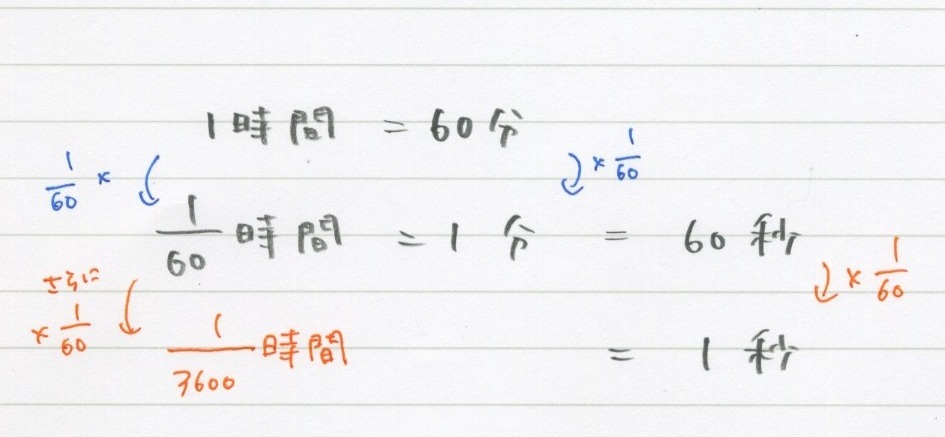 1時間 = 60分
1/60 × × 1/60
1/60 時間 = 1分 = 60秒
さらに × 1/60 × 1/60
1/3600 時間 = 1秒